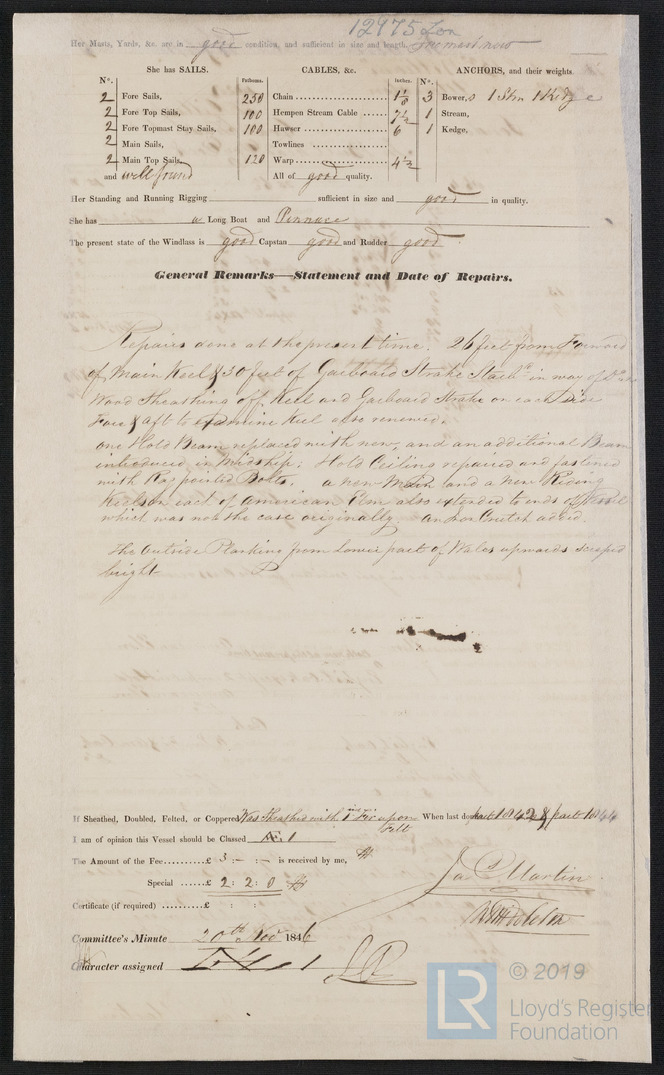 12975 Lon
Her Masts, Yards, &c. are in good condition, and sufficient in size and length. Foremast new
She has SAILS.
CABLES, &c.
ANCHORS, and their weights.
N°. Fathoms. Inches. N°.
2 Fore Sails, 250 Chain 1 1/8 3 Bower,s 1 Strm 1 Kedge
2 Fore Top Sails, 100 Hempen Stream Cable 7 1/2 1 Stream,
2 Fore Topmast Stay Sails, 100 Hawser 6 1 Kedge,
2 Main Sails, Towlines
2 Main Top Sails, 120 Warp 4 1/2
and well found All of good quality.
Her Standing and Running Rigging sufficient in size and good in quality.
She has a Long Boat and Pinnace
The present state of the Windlass is good Capstan good and Rudder good
General Remarks—Statement and Date of Repairs.
Repairs done at the present time. 26 feet from Forward
of Main Keel & 30 feet of Garboard Strake Starbd in way of Do
Wood Sheathing off Keel and Garboard Strake on each side
Fore & aft to examine Keel also renewed.
one Hold Beam replaced with new, and an additional Beam
introduced in Midship; Hold Ceiling repaired and fastened
with Rag pointed Bolts. a new Main and a new Riding
Keelson each of American Elm also extended to ends of Vessel
which was not the case originally. An Iron Crutch added.
The Outside Planking from lower part of Wales upwards scraped
bright
If Sheathed, Doubled, Felted, or Coppered Was Sheathed with Fir upon Felt When last done part 1842 & part 1844
I am of opinion this Vessel should be Classed Æ 1
The Amount of the Fee £ 3 : - : - is received by me,
Special £ 2 : 2 : 0
Certificate (if required) £ : :
Jas Martin
Committee's Minute 20th Nov 1846
Character assigned
© 2019
LR
Lloyd's Register
Foundation